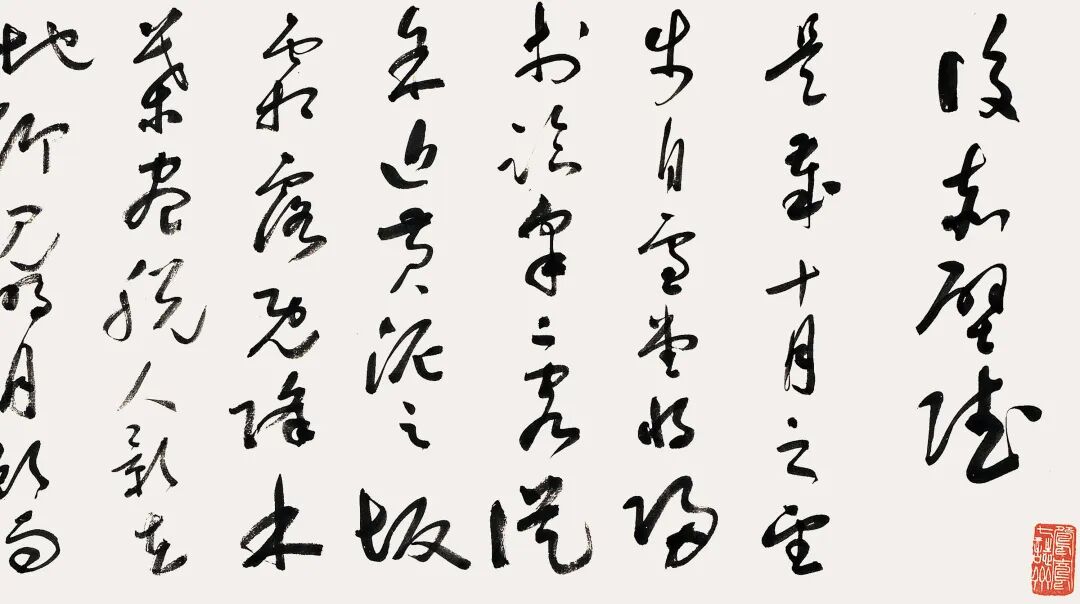 後赤壁賦
是歲十月之望
步自雪堂將歸
於臨皋二客從
余過黃泥之坂
霜露既降木
葉盡脫人影在
地仰見明月顧而